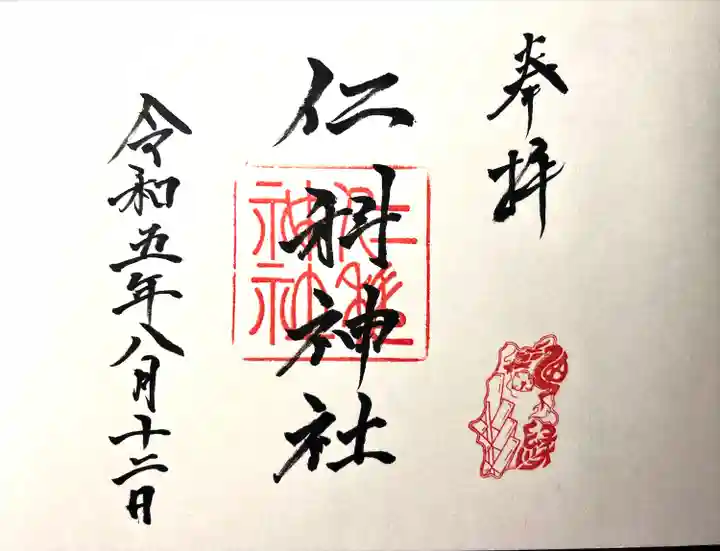 奉拝
仁科神社
令和五年八月十二日